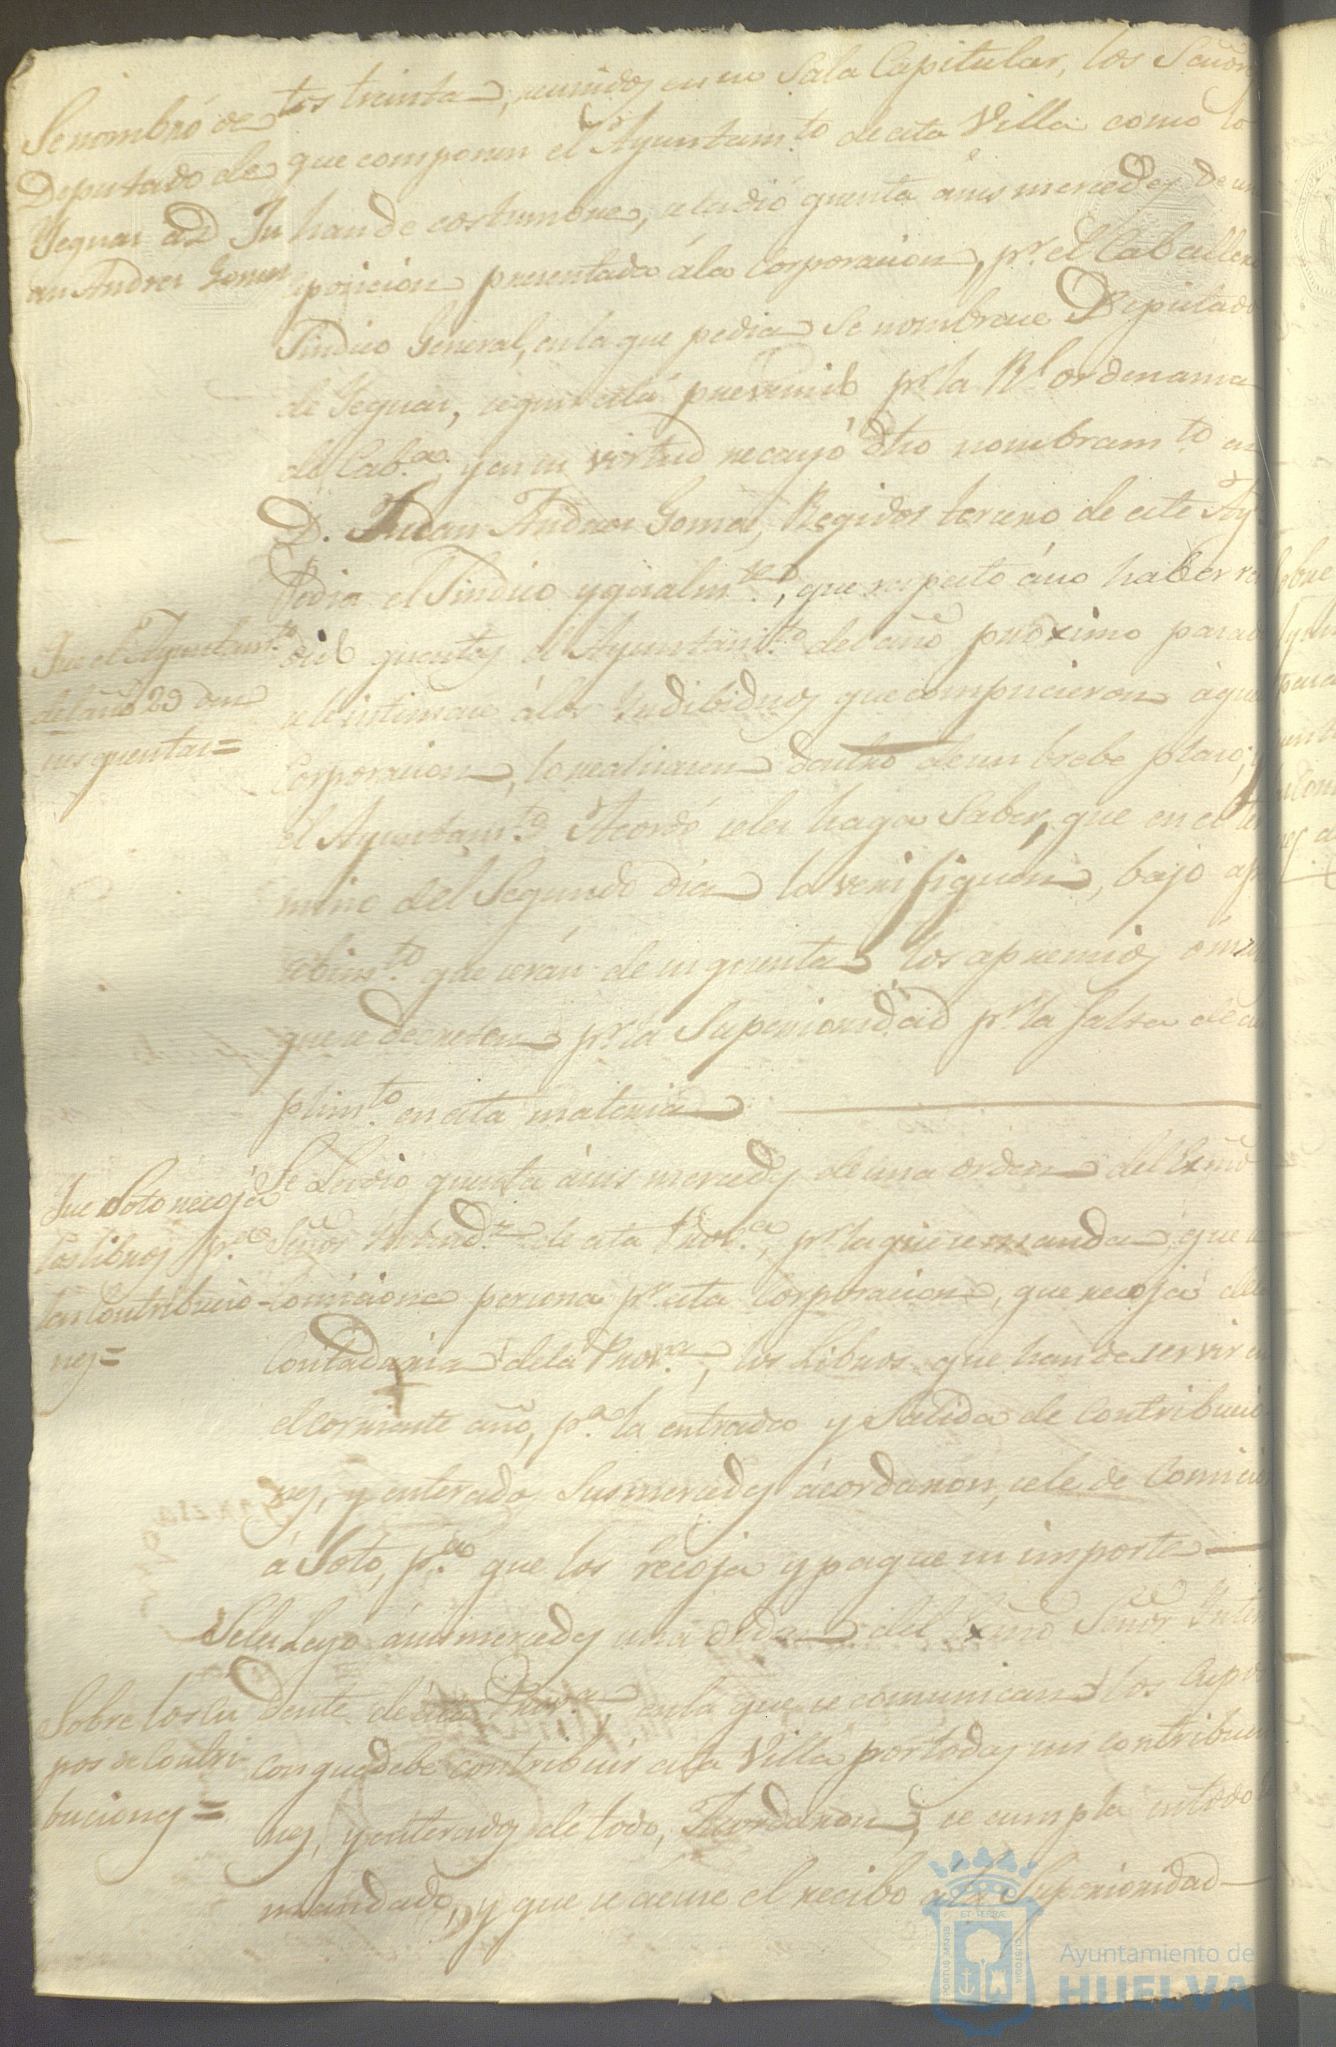 tos treinta, reunidos en su Sala Capitular, los Señores
que componen el Ayuntam.to de esta Villa como lo
han de costumbre, se le dió quenta á sus mercedes de un
esposicion presentada á la Corporacion, pr. el Caballero
Sindico General, en la que pedia se nombrase Diputado
de Yeguas, segun está prevenido pr. la Rl. ordenanza
de Cab.as y en su virtud recayó dho nombram.to en
D. Juan Andres Gomez, Regidor tercero de este Ay.
Pedia el Sindico ygualm.te, que respecto á no haber
dido quentas el Ayuntam.to del año proximo pasado
se le intimase á los Yndibiduos que compusieron aque
Corporacion, lo realizasen dentro de un brebe plazo, y
el Ayuntam.to Acordó se les haga Saber, que en el ter
mino del Segundo dia lo verifiquen, bajo ap
cebim.to que serán de su quenta los apremios ó
que se decreten pr. la Superioridad pr. la falta de cu
plim.to en esta materia
Se le dió quenta á sus mercedes de una orden del Exmo
Señor Yntend.te de esta Prov.a, pr. la que se manda, que se
comicione persona pr. esta Corporacion, que recoja de la
Contaduria de la Prov.a, los Libros que han de servir en
el corriente año, p.a la entrada y Salida de Contribucio
nes, y enterados Sus mercedes ácordaron, se le de Comicion
á Soto, p.a que los recoja y pague su importe
Se les Leyó á sus mercedes una orden del Exmo Señor Ynten
dente de esta Prov.a, en la que se comunican los Cupos
con que debe contribuir esta Villa por todas sus contribucio
nes, y enterados de todo, Acordaron, se cumpla en todo lo
mandado, y que se acuse el recibo á la Superioridad
Se nombró de
Deputado de
Yeguas á D Ju
an Andres Gomez
Que el Ayuntam.to
del año 29 den
sus quentas=
Que Soto recoja
los libros p.a
las Contribucio
nes=
Sobre los cu
pos de Contri
buciones=
PORTUS MARIS
ET TERRÆ
CUSTODIA
Ayuntamiento de
HUELVA